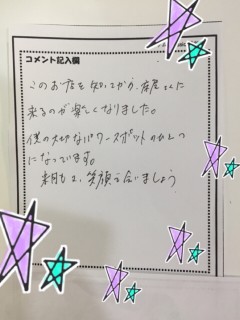 コメント記入欄
このお店を知ってから、
来るのが楽しくなりました。
僕の大切なパワースポットの1つ
になっています。
来月も又、笑顔で会いましょう